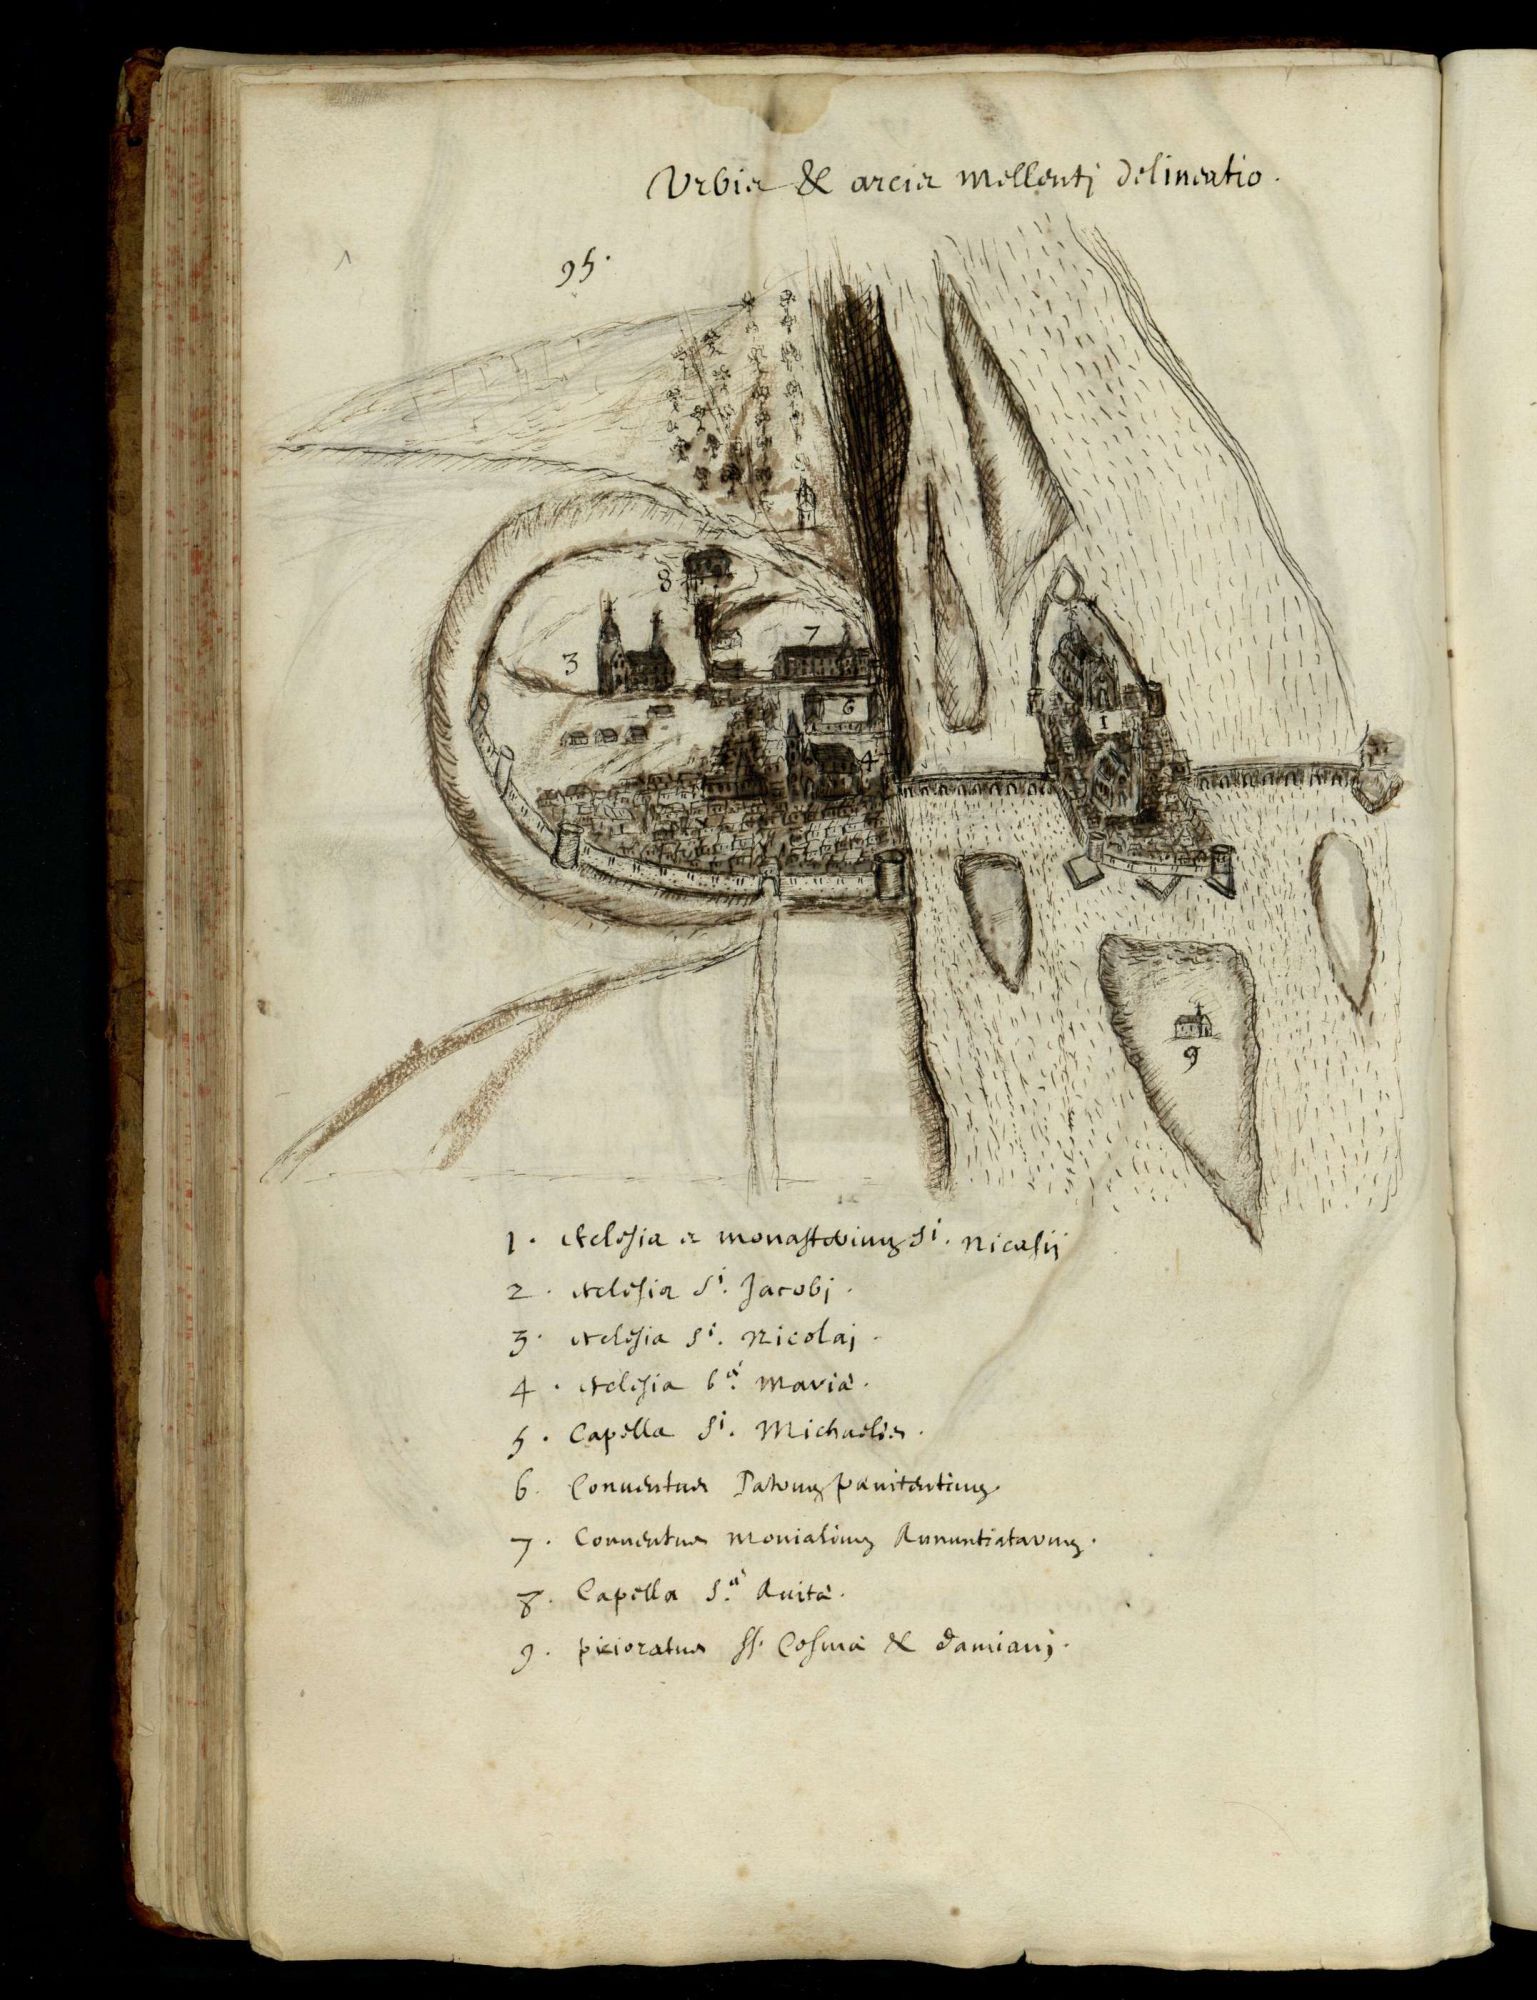 Urbis & arcis Mellentj delineatio.
95.
8
3
7
6
4
1
9
1. Ecclesia et monasterium Si. Nicasij
2. ecclesia Si. Jacobj.
3. ecclesia Si. Nicolaj.
4. ecclesia bæ. Mariæ.
5. Capella Si. Michaelis.
6. Conventus Patrum pænitentium.
7. Conventus monialium Annuntiatarum.
8. Capella Sæ Avitæ.
9. prioratus SS. Cosmæ & damiani.